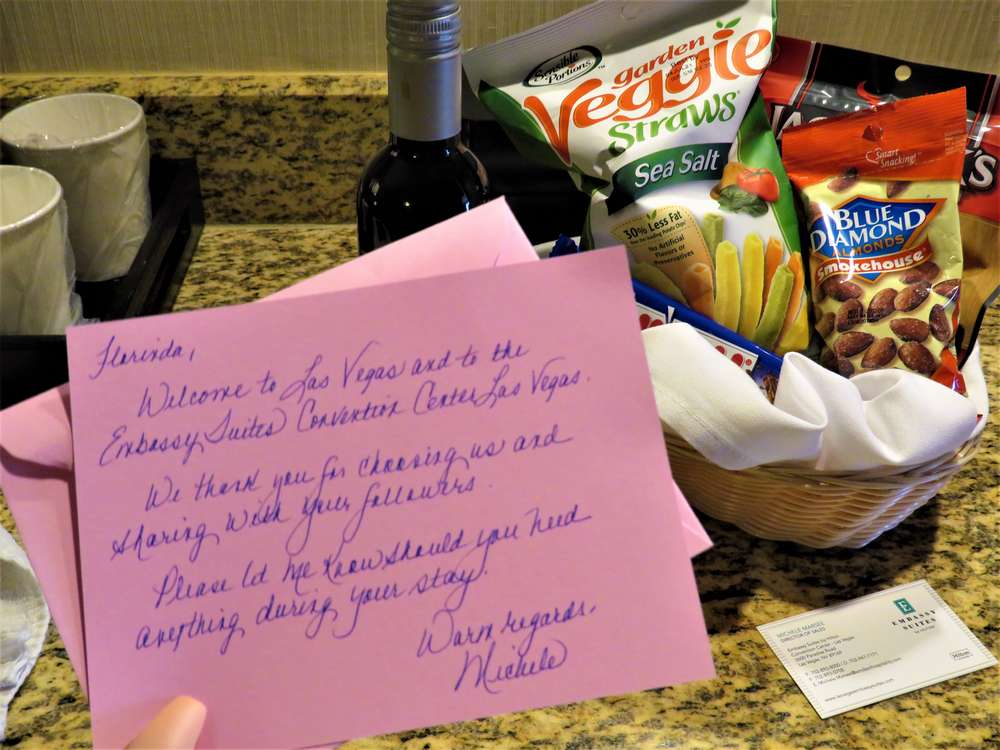 Florinda,
Welcome to Las Vegas and to the
Embassy Suites Convention Center Las Vegas.
We thank you for choosing us and
sharing with your followers.
Please let me know should you need
anything during your stay.
Warm regards,
Michele
Sensible Portions
garden
Veggie
Straws
Sea Salt
30% Less Fat
No Artificial
Flavors or
Preservatives
Smart
Snacking!
BLUE
DIAMOND
ALMONDS
smokehouse
EMBASSY
SUITES
Hilton
DIRECTOR OF SALES
Embassy Suites by Hilton
Convention Center - Las Vegas
3600 Paradise Road
Las Vegas, NV 89169